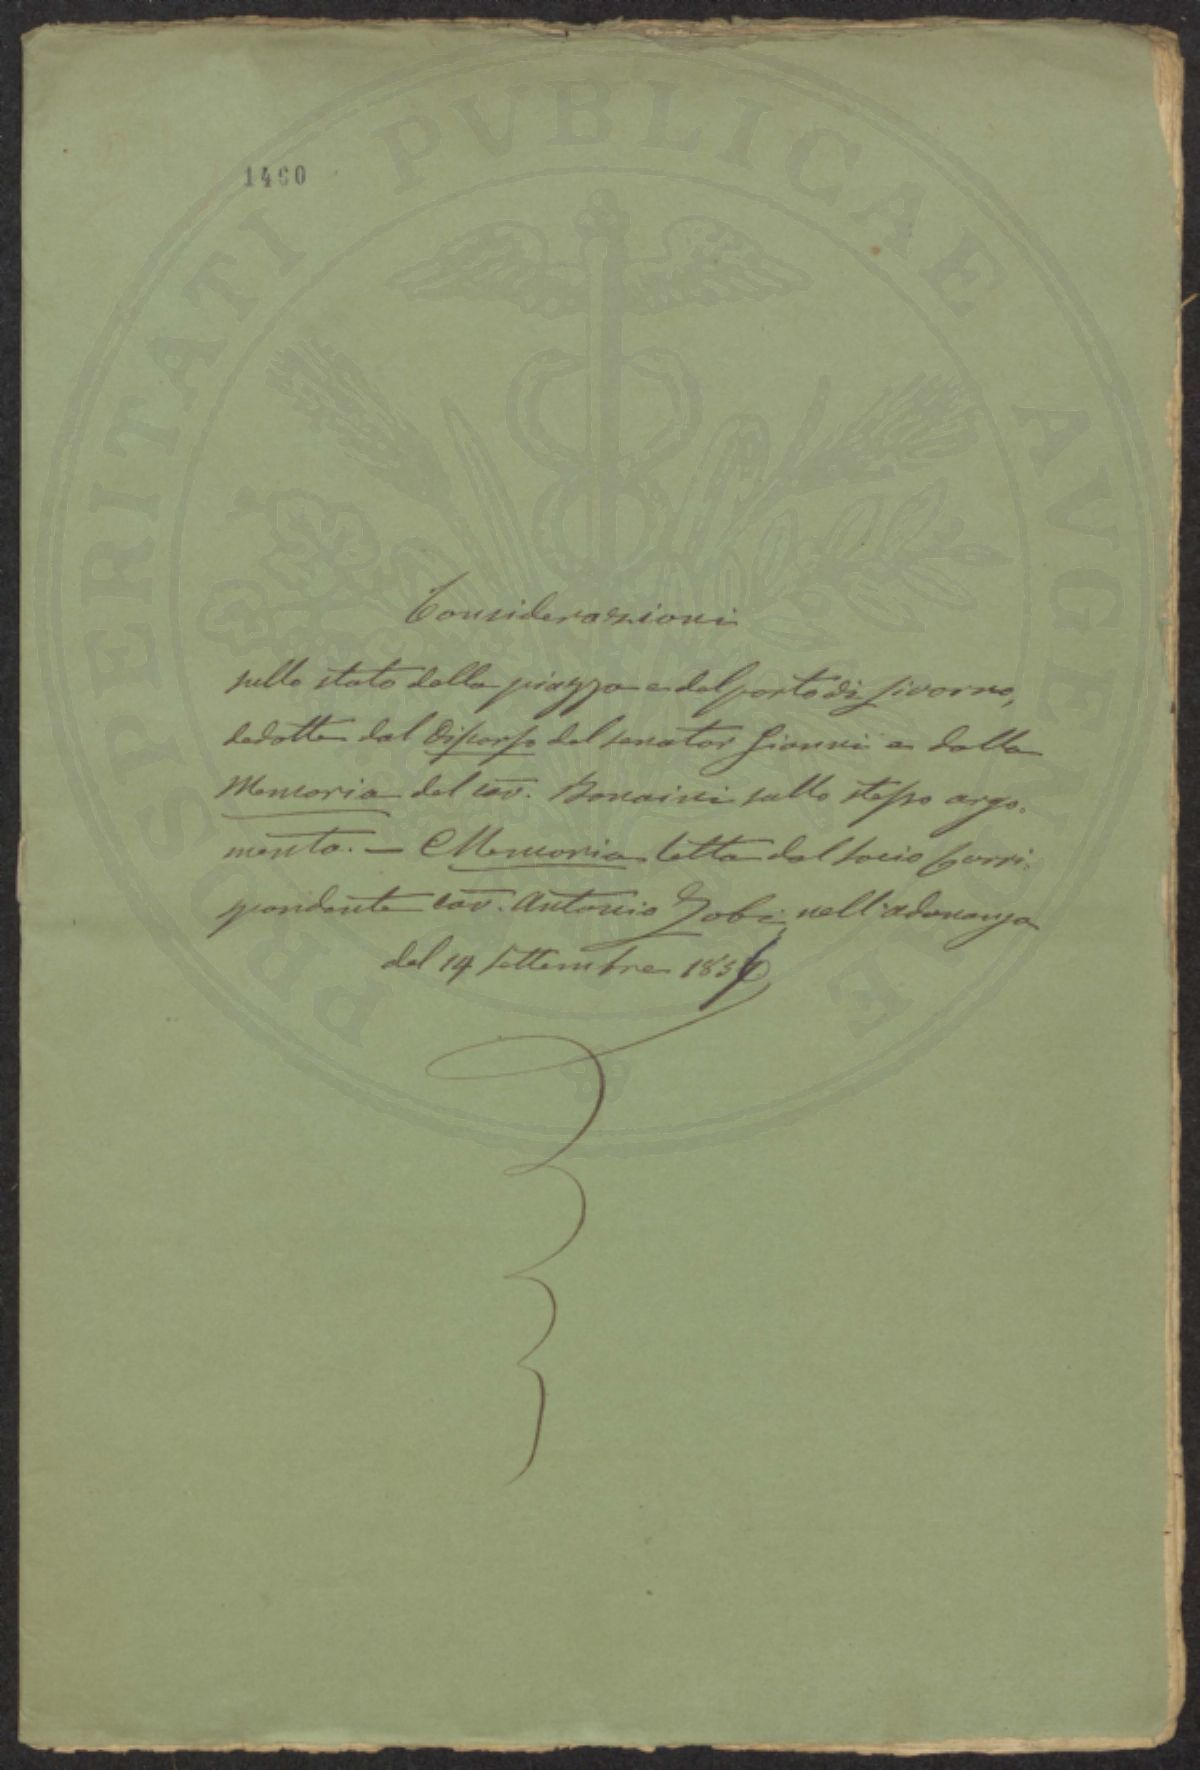 PROSPERITATI PVBLICAE AVGENDAE
1460
Considerazioni
sullo stato della piazza e del porto di Livorno,
dedotte dal Discorso del senator Gianni e dalla
Memoria del cav. Bonaini sullo stesso argo-
mento. — Memoria letta dal socio Corri-
spondente cav. Antonio Zobi nell'adunanza
del 14 settembre 185